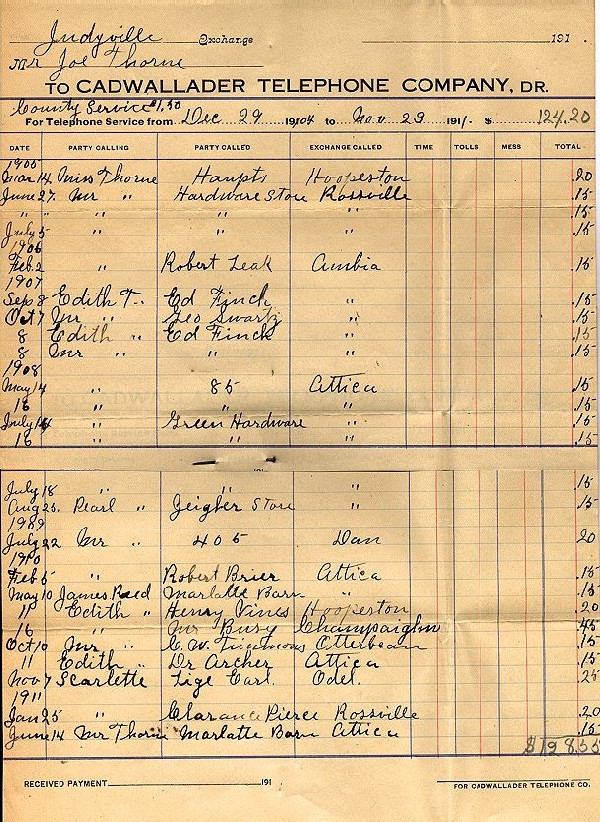 Judyville Exchange 191
Mr Joe Thorne
TO CADWALLADER TELEPHONE COMPANY, DR.
County Service $1.50
For Telephone Service from Dec 29 1904 to Nov. 29 1911. $ 124.20
DATE PARTY CALLING PARTY CALLED EXCHANGE CALLED TIME TOLLS MESS TOTAL
1905
Mar 14 Miss Thorne Haupts Hoopeston .20
June 27. Mr " Hardware Store Rossville .15
" " " " " .15
July 5 " " " .15
1906
Feb. 2 Robert Leak Ambia .15
1907
Sep 8 Edith T.. Ed Finch " .15
Oct 7 Mr " Geo Swartz " .15
8 Edith " Ed Finck " .15
8 Mr " " " .15
1908
May 14 " 85 Attica .15
16 " " " .15
July 14 " Green Hardware " .15
16 " " " .15
191
July 18 " " " .15
Aug 25. Pearl " Zeigler Store " .15
1909
July 22 Mr " 405 Dan 20
1910
Feb 5 " Robert Brier Attica .15
May 10 James Reed Marlatte Barn " .15
11 Edith " Henry Vines Hoopeston .20
16 " Mr Busy Champaighn .45
Oct 10 Mr " C. W. Otterbeam .15
11 Edith " Dr Archer Attica .15
Nov 7 Scarlette Tige Earl. Odel. .25
1911
Jan 25 " Clarance Pierce Rossville .20
June 14 Mr Thorne Marlatte Barn Attica .15
$128.55
RECEIVED PAYMENT 191 FOR CADWALLADER TELEPHONE CO.